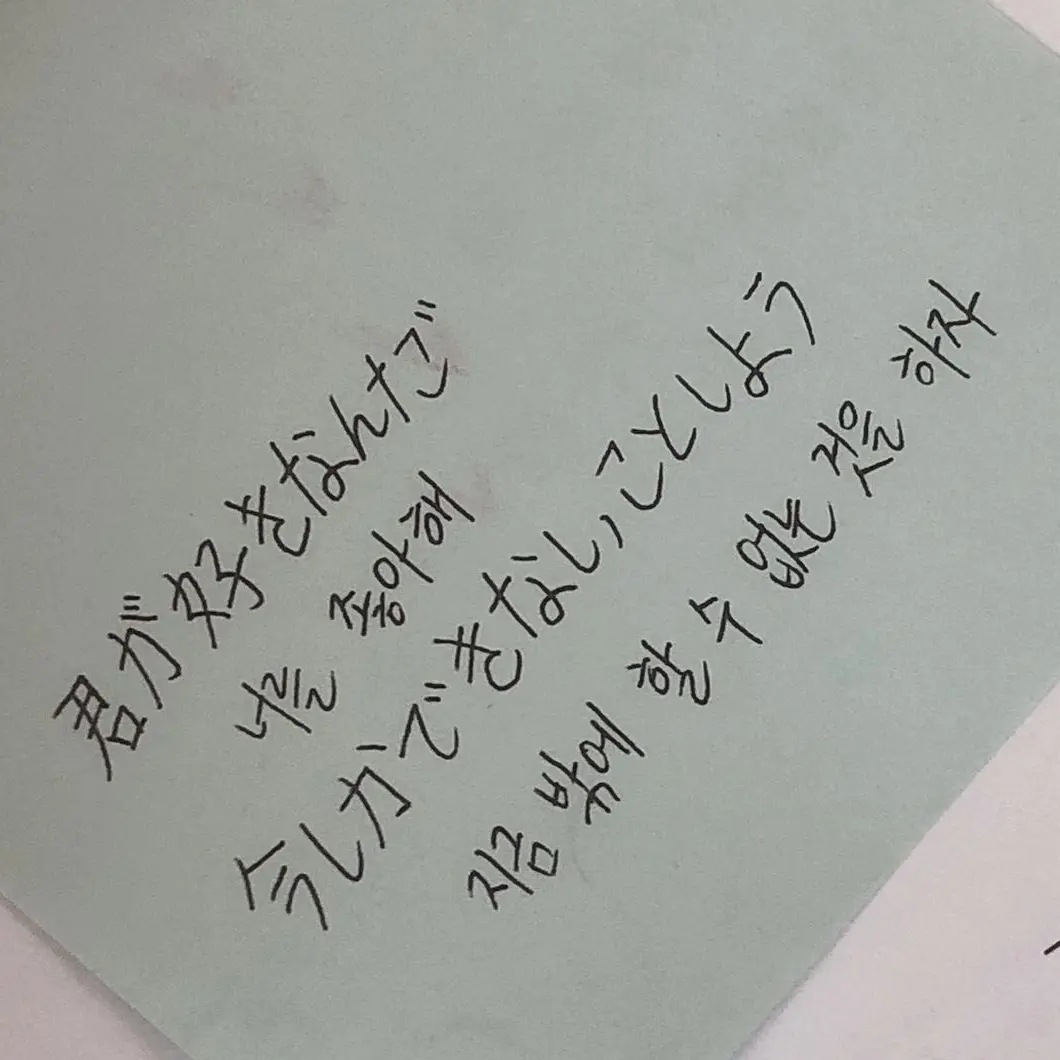 君が好きなんだ
너를 좋아해
今しかできないことしよう
지금 밖에 할 수 없는 것을 하자